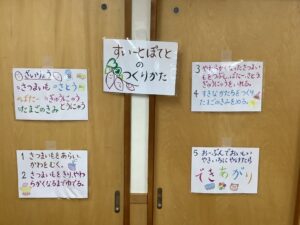 すいーとぽてと
の
つくりかた
ざいりょう
さつまいも
さとう
ばたー
ぎゅうにゅう
とうにゅう
たまごのきみ
1 さつまいもをあらい、
かわをむく。
2 さつまいもをきり、やわ
らかくなるまでゆでる。
3 やわらかくなったさつまい
もをつぶし、ばたー、さとう、
ぎゅうにゅうをいれる。
4 すきなかたちをつくり
たまごのきみをぬる。
5 おーぶんでおいしい
やきいろにやけたら
できあがり